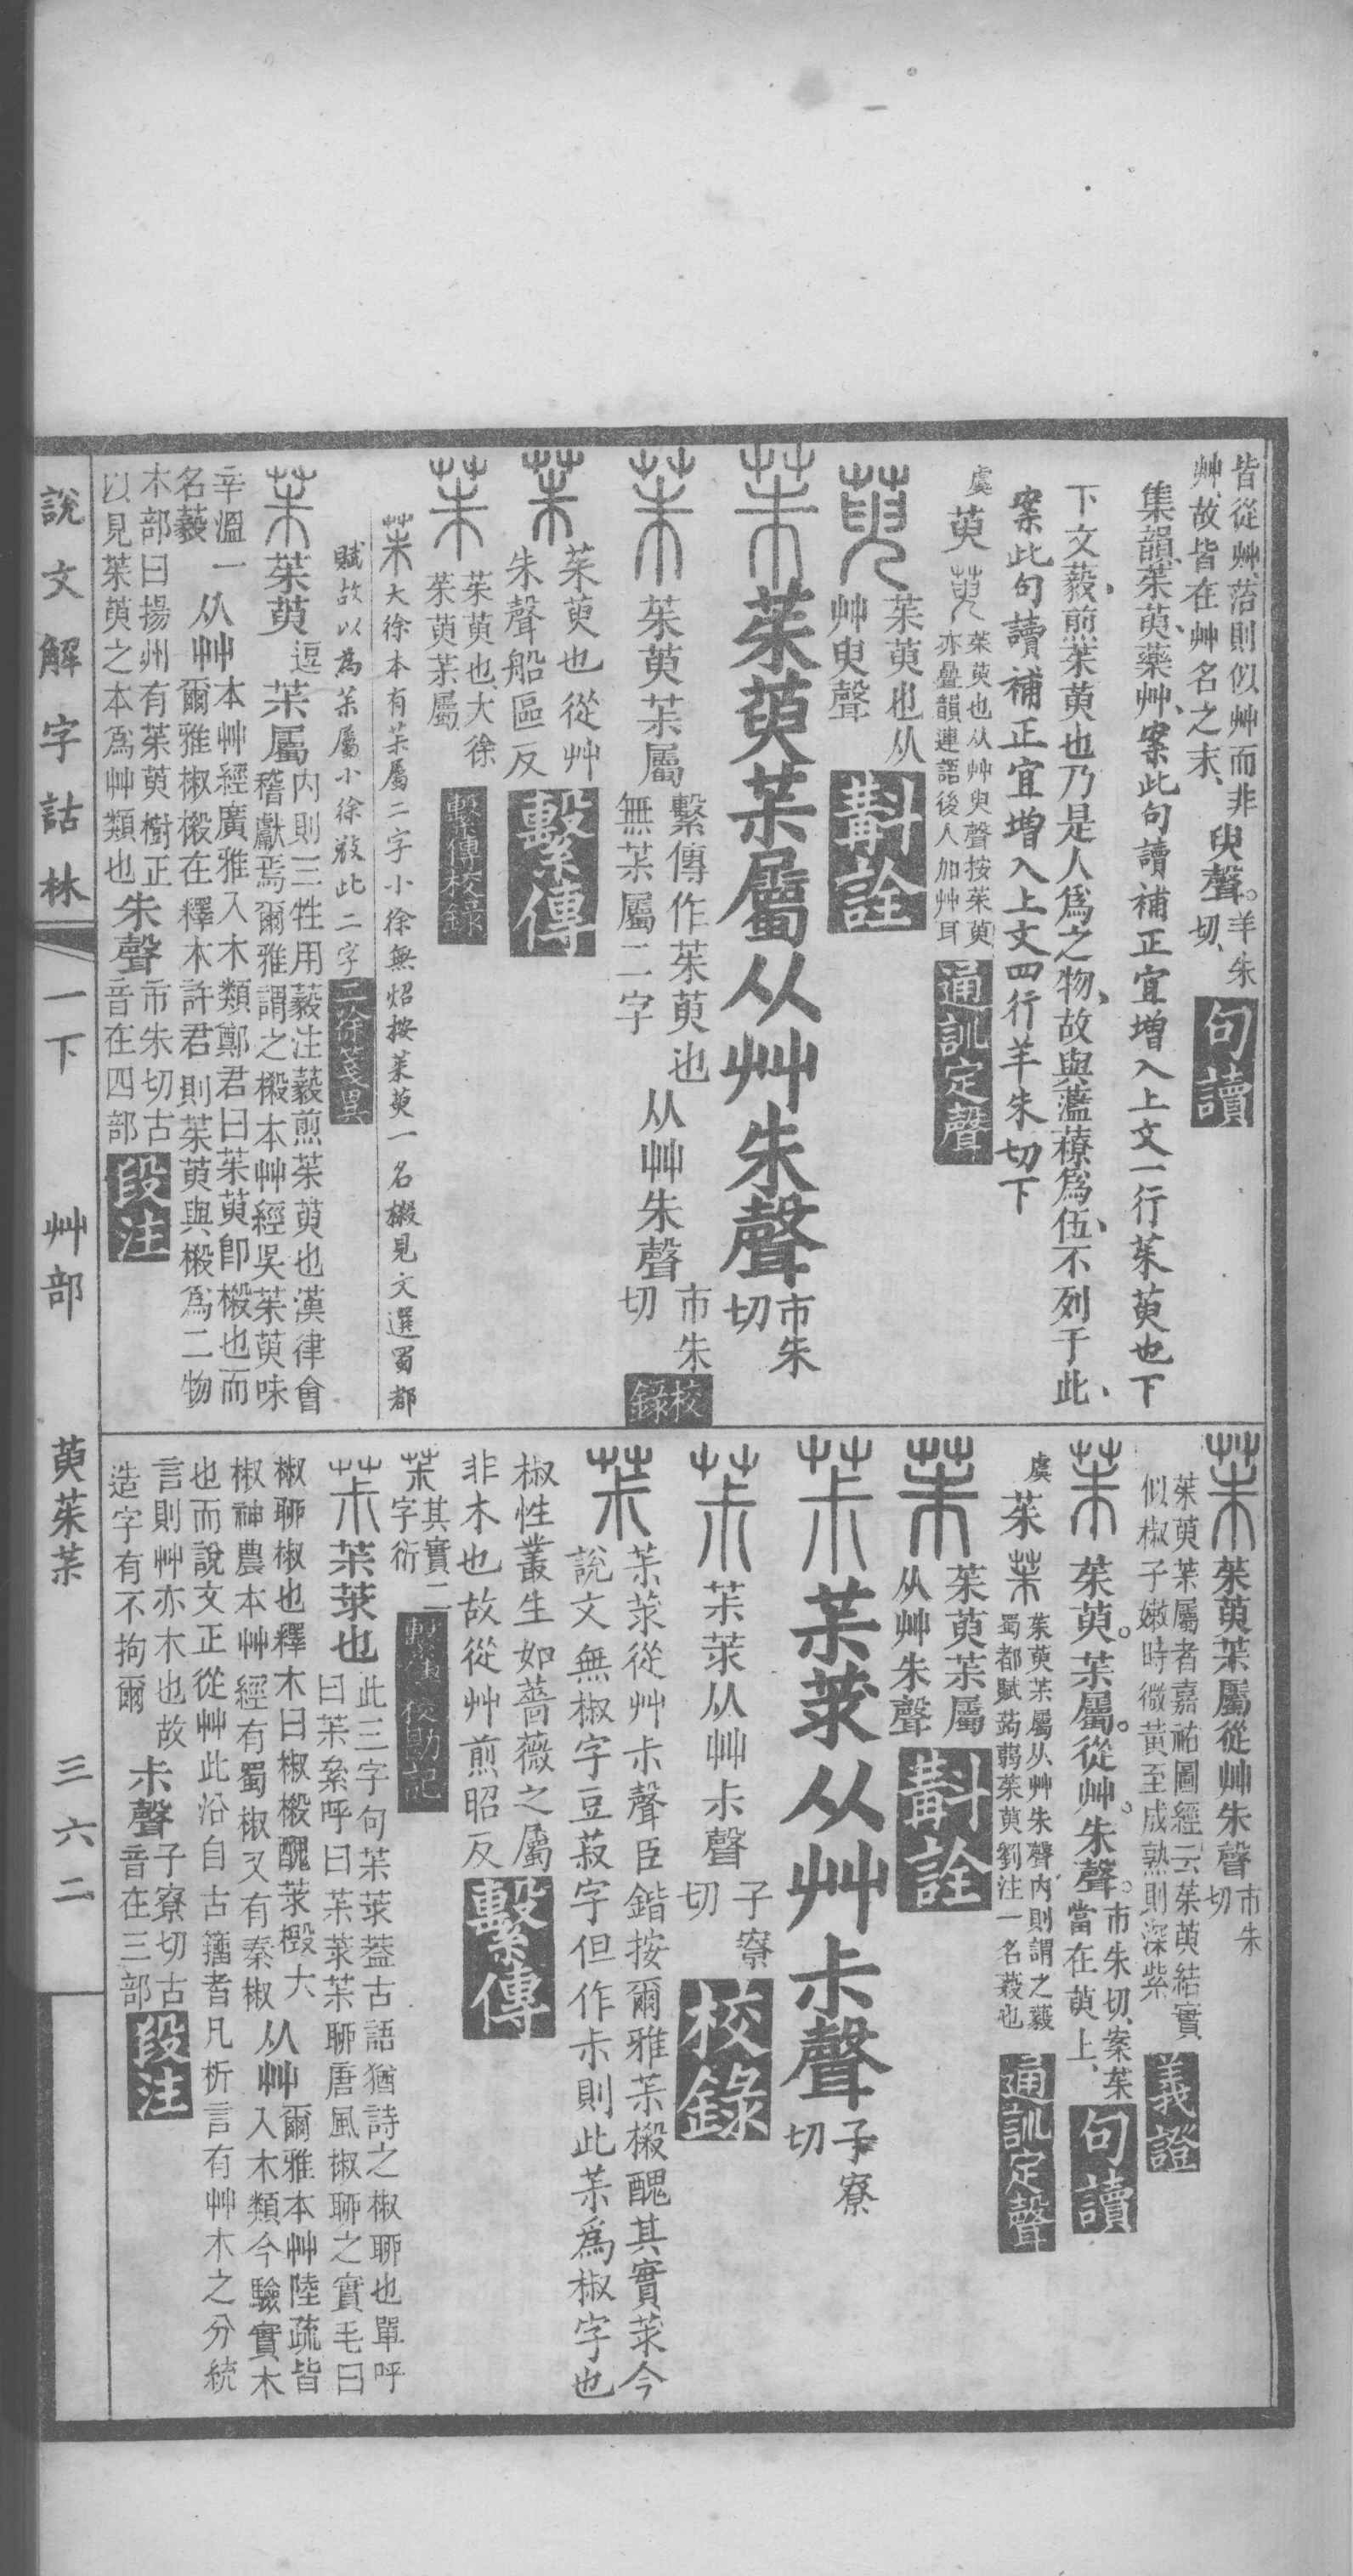 皆從艸落則似艸而非
艸故皆在艸名之末、臾聲。羊朱切、句讀
集韻、茱萸、藥艸、案此句讀補正宜增入上文一行茱萸也下
下文藙、煎茱萸也乃是人爲之物、故與薀藔爲伍、不列于此、
案此句讀補正宜增入上文四行羊朱切下
虞 萸 萸 茱萸也从艸臾聲按茱萸
亦疊韻連語後人加艸耳 通訓定聲
萸 茱萸也从
艸臾聲 斠詮
茱 茱萸茮屬从艸朱聲 市朱切
茱 茱萸茮屬 繫傳作茱萸也
無茮屬二字 从艸朱聲 市朱切 校錄
茱 茱萸也從艸
朱聲船區反 繫傳
茱 茱萸也、大徐
茱萸茮屬 繫傳校錄
茱 大徐本有茮屬二字小徐無炤按茱萸一名樧見文選蜀都
賦故以為茮屬小徐敚此二字 二徐箋異
茱 茱萸 逗 茮屬 內則三牲用藙注藙煎茱萸也漢律會
稽獻焉爾雅謂之樧本艸經吳茱萸味
辛溫一
名藙 从艸 本艸經廣雅入木類鄭君曰茱萸卽樧也而
爾雅椒樧在釋木許君則茱萸與樧爲二物
木部曰揚州有茱萸樹正
以見茱萸之本爲艸類也 朱聲 市朱切古
音在四部 段注
茱 茱萸茮屬從艸朱聲 市朱切
茱萸茮屬者嘉祐圖經云茱萸結實
似椒子嫩時微黃至成熟則深紫 義證
茱 茱萸。茮屬。從艸。朱聲。市朱切、案茱
當在萸上、句讀
虞 茱 茱 茱萸茮屬从艸朱聲、內則謂之藙
蜀都賦蒟蒻茱萸劉注一名藙也 通訓定聲
茱 茱萸茮屬
从艸朱聲 斠詮
茮 茮莍从艸尗聲 子寮切
茮 茮莍从艸尗聲 子寮切 校錄
茮 茮莍從艸尗聲臣鍇按爾雅茮樧醜其實莍今
說文無椒字豆菽字但作尗則此茮爲椒字也
椒性叢生如薔薇之屬
非木也故從艸煎昭反 繫傳
茮 其實二
字衍 繫傳校勘記
茮 茮莍也 此三字句茮莍葢古語猶詩之椒聊也單呼
曰茮絫呼曰茮莍茮聊唐風椒聊之實毛曰
椒聊椒也釋木曰椒樧醜莍榝大
椒神農本艸經有蜀椒又有秦椒 从艸 爾雅本艸陸疏皆
入木類今驗實木
也而說文正從艸此沿自古籒者凡析言有艸木之分統
言則艸亦木也故
造字有不拘爾 尗聲 子寮切古
音在三部 段注
說文解字詁林 一下 艸部 萸茱茮 三六二